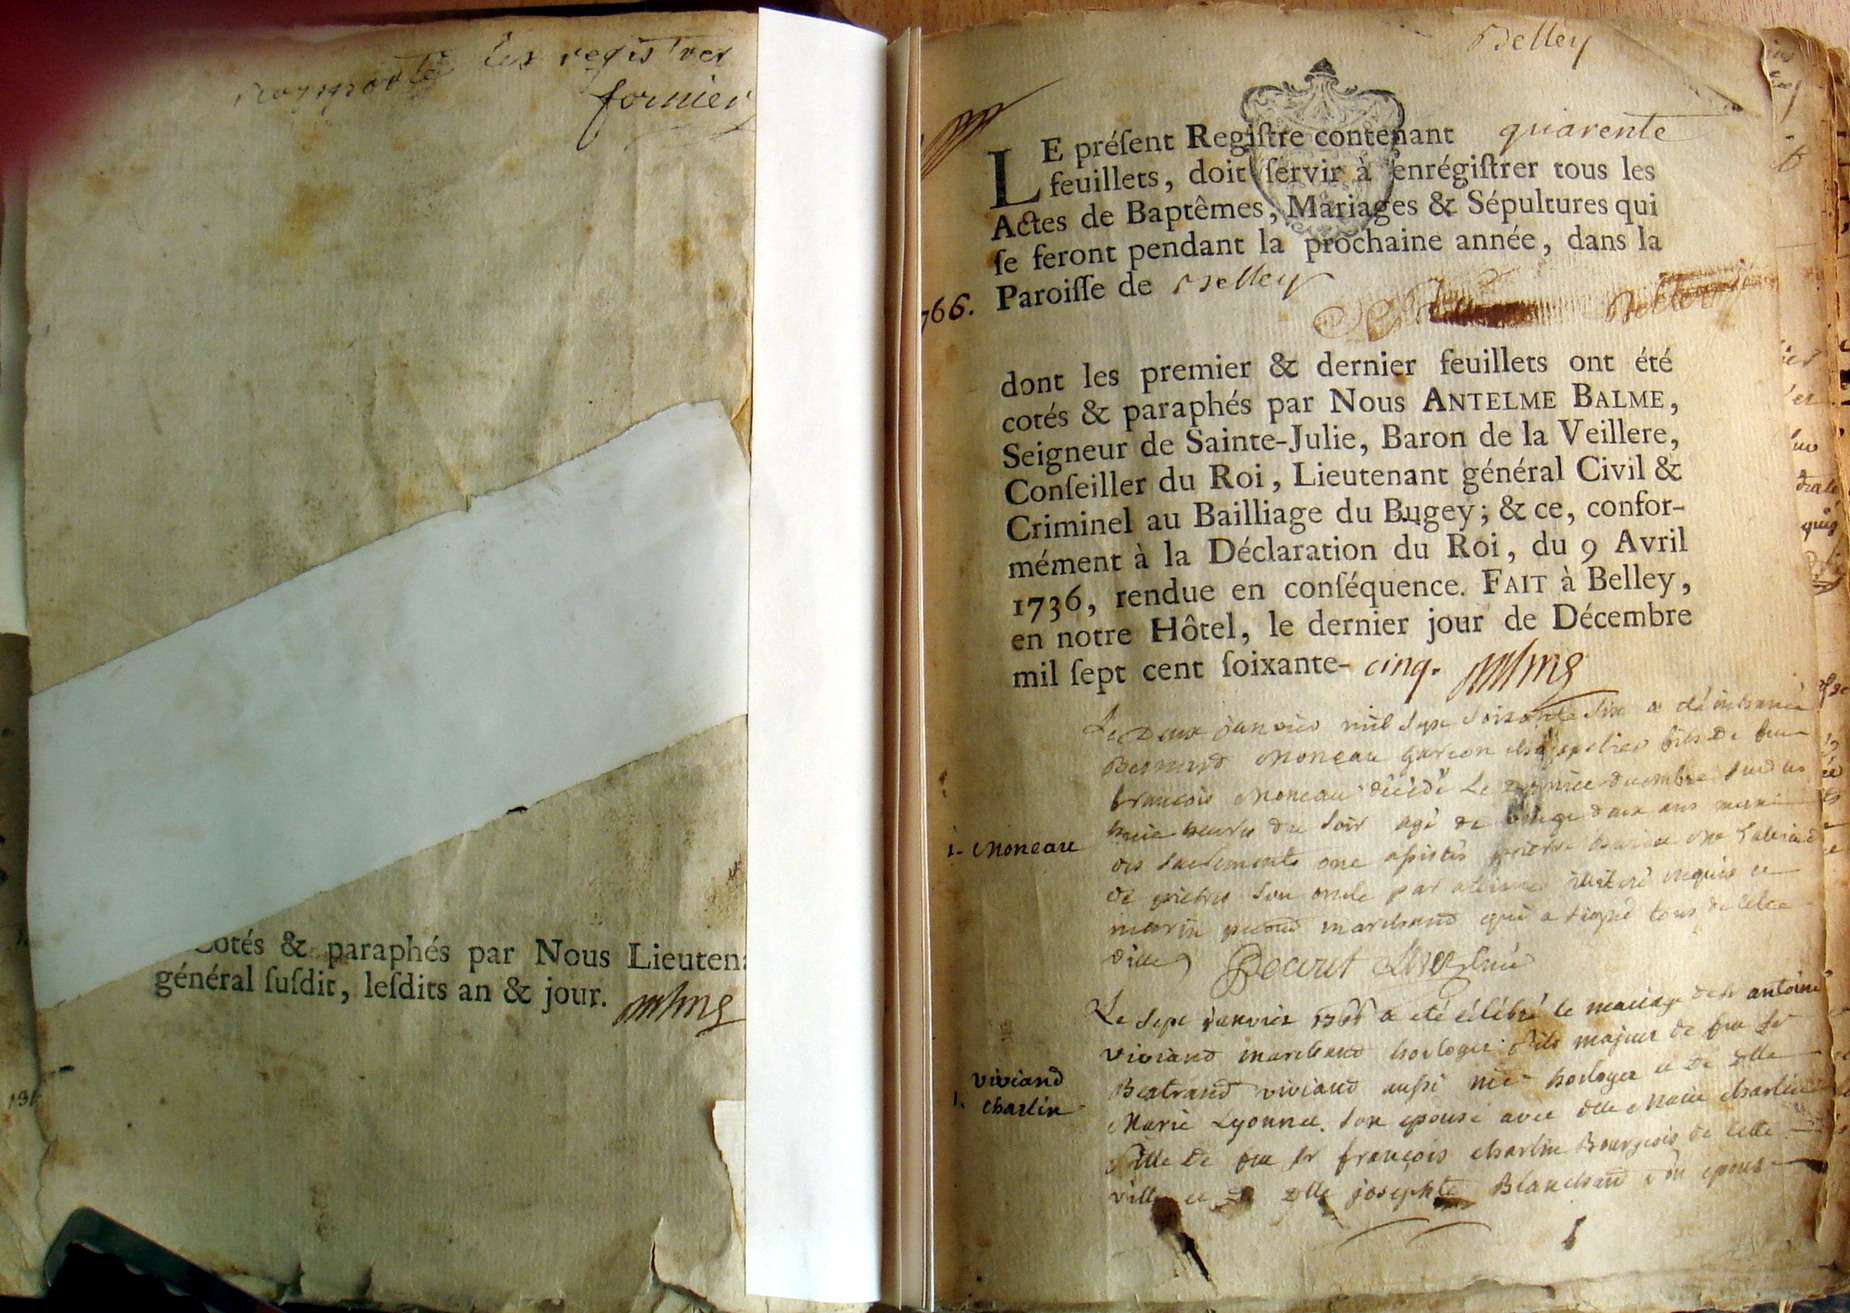 les registres
fornier
Cotés & paraphés par Nous Lieuten
général ſuſdit, leſdits an & jour.
Belley
LE préſent Regiſtre contenant quarente
feuillets, doit ſervir à enrégiſtrer tous les
Actes de Baptêmes, Mariages & Sépultures qui
ſe feront pendant la prochaine année, dans la
766. Paroiſſe de Belley
dont les premier & dernier feuillets ont été
cotés & paraphés par Nous ANTELME BALME,
Seigneur de Sainte-Julie, Baron de la Veillere,
Conſeiller du Roi, Lieutenant général Civil &
Criminel au Bailliage du Bugey; & ce, confor-
mément à la Déclaration du Roi, du 9 Avril
1736, rendue en conſéquence. FAIT à Belley,
en notre Hôtel, le dernier jour de Décembre
mil ſept cent ſoixante- cinq.
Le Deux janvier mil sept soixante six a été inhumé
Bernard Moneau garcon chapelier fils de feu
francois Moneau décédé Le dernier decembre sur les
huit heures du soir agé de vingt deux ans muni
1- Moneau
des sacrements ont assistés
son oncle par alliance illitéré requis et
marin marchand qui a signé tous de cette
ville
Le sept janvier 1766 a été célébré le mariage de sr antoine
viviand marchand horloger fils majeur de feu sr
viviand
Bertrand viviand aussi md horloger et de dlle
1. charlin
Marie Lyonnet son epouse avec dlle Marie charlin
fille de feu sr françois charlin Bourgeois de cette
ville et de dlle josephte Blanchard son epouse